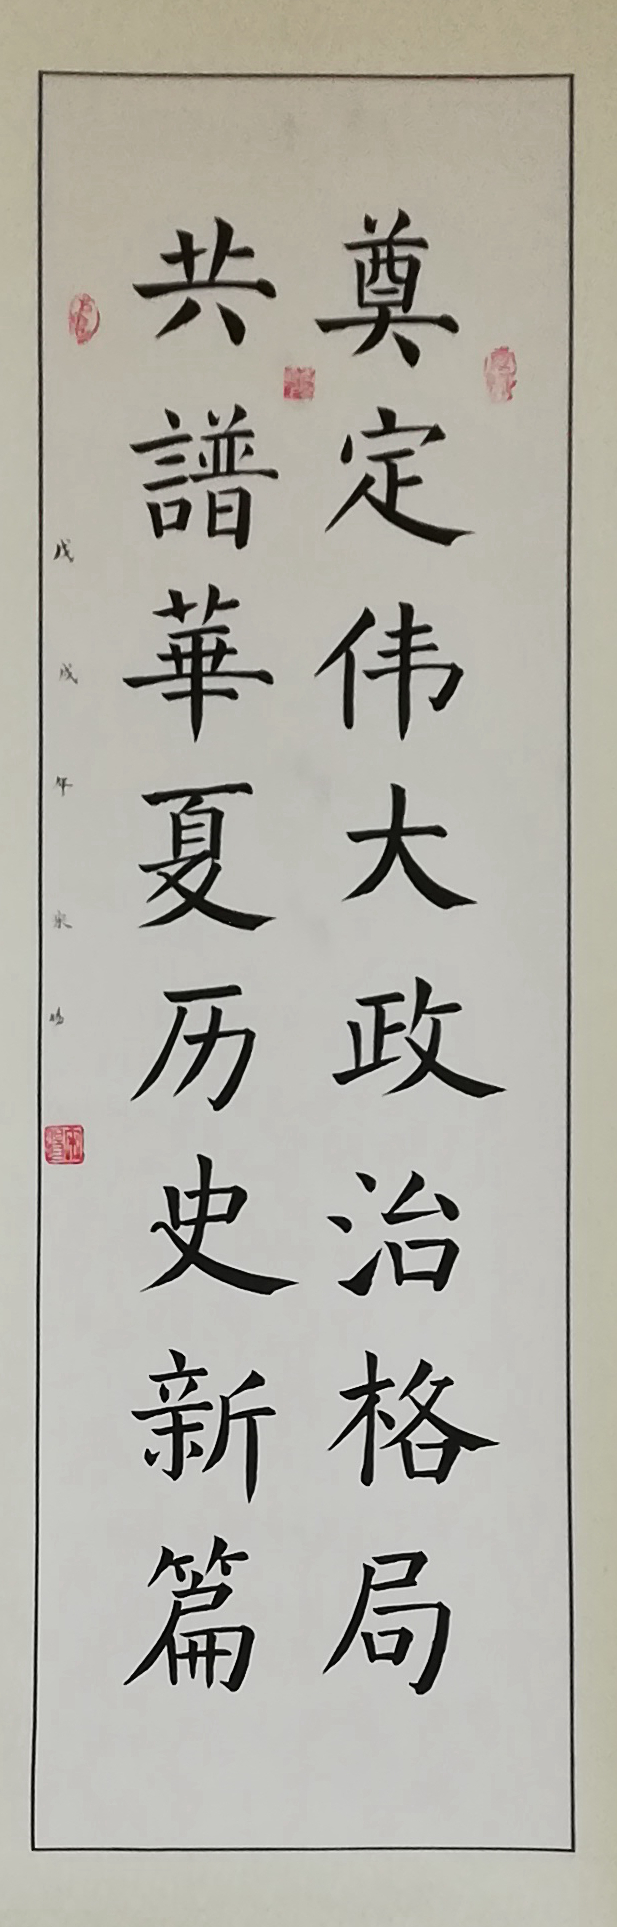 奠定伟大政治格局
共譜華夏历史新篇
戊戌年